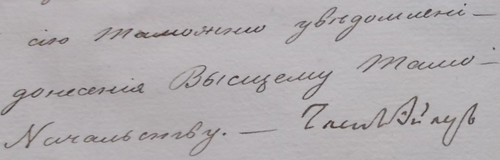 сію таможню увѣдомлені-
донесенія Высшему Тамо-
Начальству. —